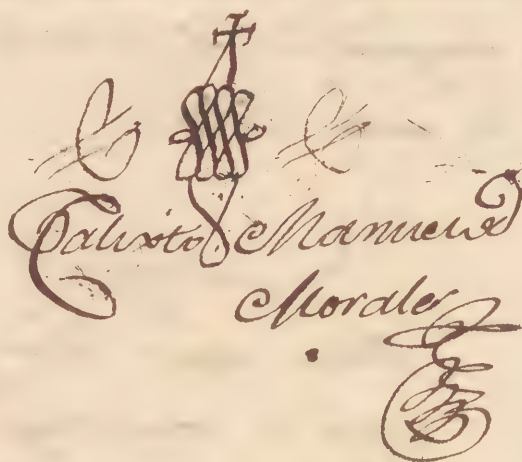 Calixto Manuel
Morales